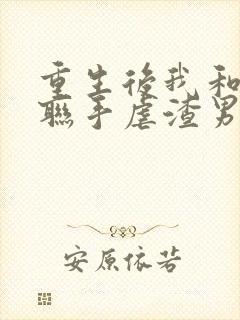 重生後我和
聯手虐渣男
安原依若